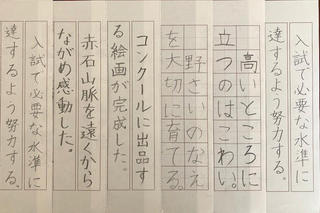 入試で必要な水準に
達するよう努力する。
高いところに
立つのはこわい。
野さいのなえ
を大切に育てる。
コンクールに出品す
る絵画が完成した。
赤石山脈を遠くから
ながめ感動した。
入試で必要な水準に
達するよう努力する。